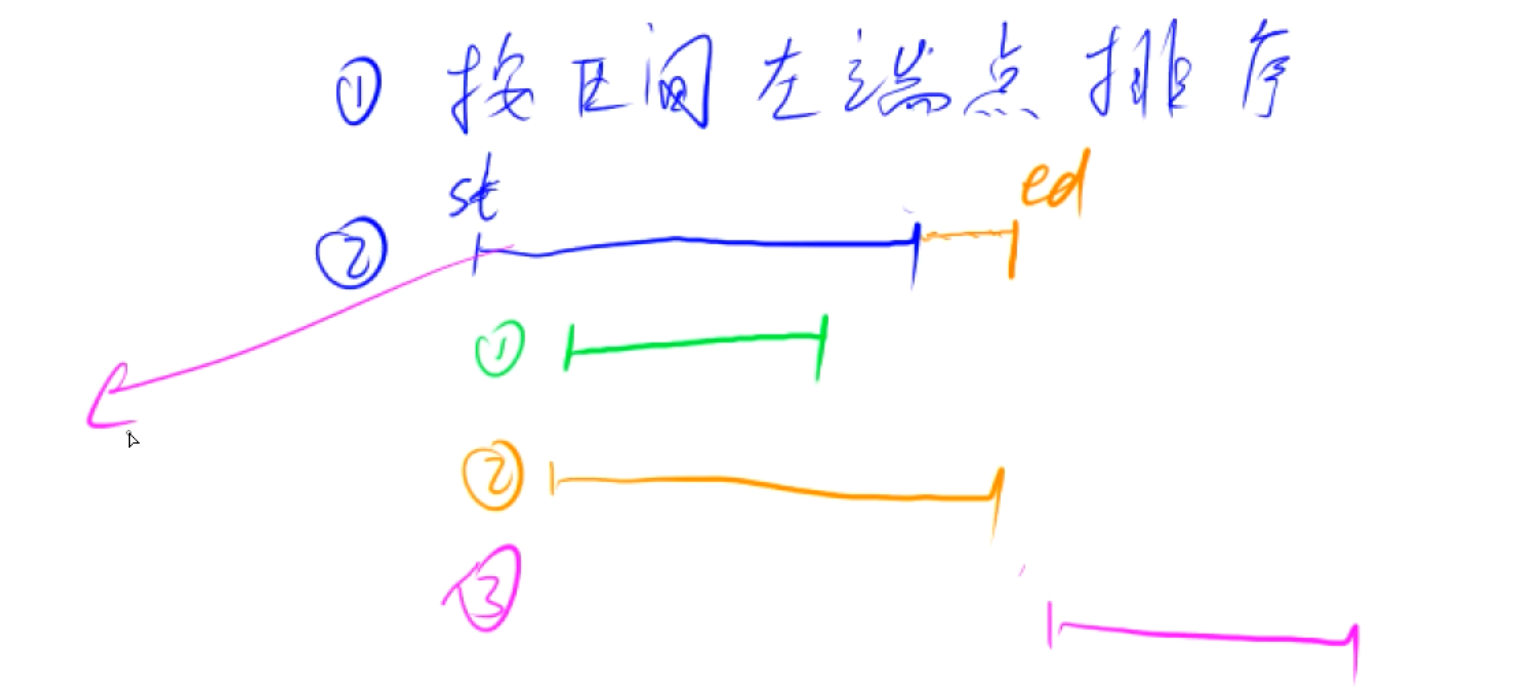 ① 按区间左端点排序
st
ed
②
①
②
③